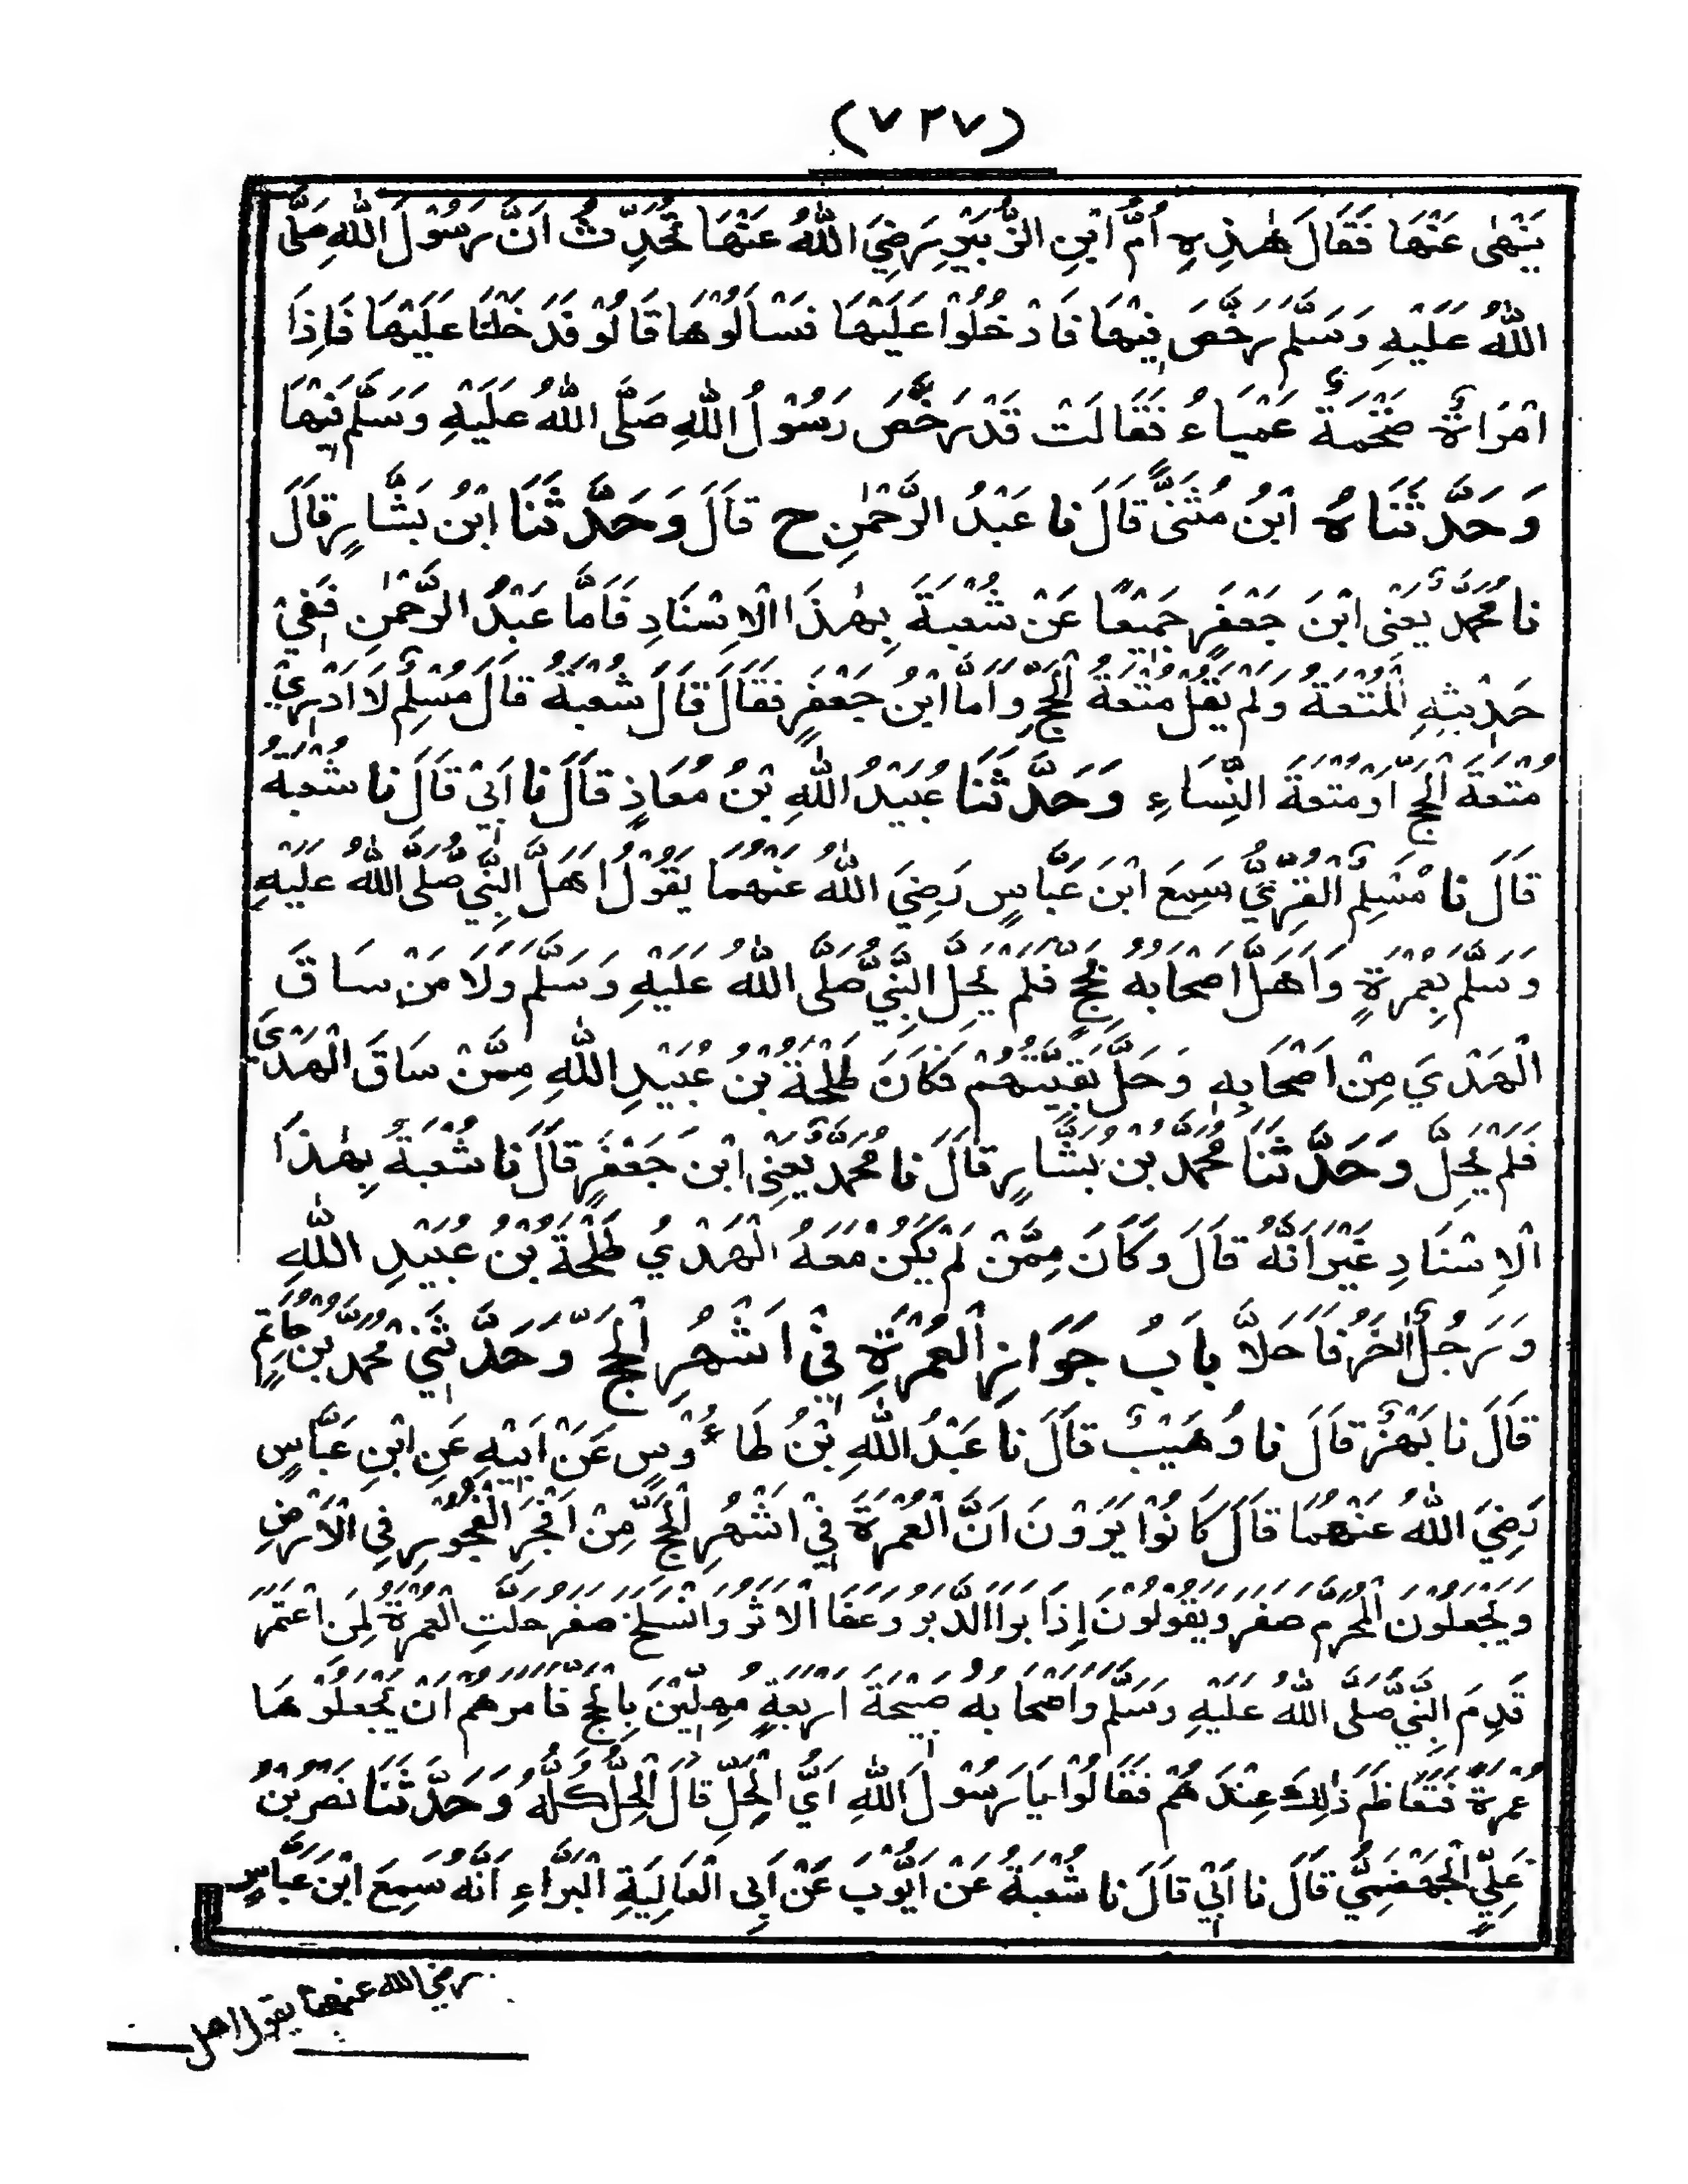 (٧٢٧)
يَنْهٰى عَنْهَا فَقَالَ هٰذِهِ اُمُّ ابْنِ الزُّبَيْرِ رَضِيَ اللّٰهُ عَنْهَا تُحَدِّثُ اَنَّ رَسُوْلَ اللّٰهِ صَلَّى
اللّٰهُ عَلَيْهِ وَسَلَّمَ رَخَّصَ فِيْهَا فَادْخُلُوْا عَلَيْهَا فَسْاَلُوْهَا قَالُوْ فَدَخَلْنَا عَلَيْهَا فَاِذَا
امْرَاَةٌ ضَخْمَةٌ عَمْيَاءُ فَقَالَتْ قَدْ رَخَّصَ رَسُوْلُ اللّٰهِ صَلَّى اللّٰهُ عَلَيْهِ وَسَلَّمَ فِيْهَا
وَحَدَّثَنَاهُ ابْنُ مُثَنًّى قَالَ نا عَبْدُ الرَّحْمٰنِ ح قَالَ وَحَدَّثَنَا ابْنُ بَشَّارٍ قَالَ
نا مُحَمَّدٌ يَعْنِى ابْنَ جَعْفَرٍ جَمِيْعًا عَنْ شُعْبَةَ بِهٰذَا الْاِسْنَادِ فَاَمَّا عَبْدُ الرَّحْمٰنِ فَفِيْ
حَدِيْثِهِ الْمُتْعَةُ وَلَمْ يَقُلْ مُتْعَةُ الْحَجِّ وَاَمَّا ابْنُ جَعْفَرٍ فَقَالَ قَالَ شُعْبَةُ قَالَ مُسْلِمٌ لَا اَدْرِيْ
مُتْعَةَ الْحَجِّ اَوْ مُتْعَةَ النِّسَاءِ وَحَدَّثَنَا عُبَيْدُ اللّٰهِ بْنُ مُعَاذٍ قَالَ نا اَبِيْ قَالَ نا شُعْبَةُ
قَالَ نا مُسْلِمٌ الْقُرِّيُّ سَمِعَ ابْنَ عَبَّاسٍ رَضِيَ اللّٰهُ عَنْهُمَا يَقُوْلُ اَهَلَّ النَّبِيُّ صَلَّى اللّٰهُ عَلَيْهِ
وَسَلَّمَ بِعُمْرَةٍ وَاَهَلَّ اَصْحَابُهُ بِحَجٍّ فَلَمْ يَحِلَّ النَّبِيُّ صَلَّى اللّٰهُ عَلَيْهِ وَسَلَّمَ وَلَا مَنْ سَاقَ
الْهَدْيَ مِنْ اَصْحَابِهِ وَحَلَّ بَقِيَّتُهُمْ فَكَانَ طَلْحَةُ بْنُ عُبَيْدِ اللّٰهِ مِمَّنْ سَاقَ الْهَدْيَ
فَلَمْ يَحِلَّ وَحَدَّثَنَا مُحَمَّدُ بْنُ بَشَّارٍ قَالَ نا مُحَمَّدٌ يَعْنِى ابْنَ جَعْفَرٍ قَالَ نا شُعْبَةُ بِهٰذَا
الْاِسْنَادِ غَيْرَ اَنَّهُ قَالَ وَكَانَ مِمَّنْ لَمْ يَكُنْ مَعَهُ الْهَدْيُ طَلْحَةُ بْنُ عُبَيْدِ اللّٰهِ
وَرَجُلٌ اٰخَرُ فَاَحَلَّا بَابُ جَوَازِ الْعُمْرَةِ فِيْ اَشْهُرِ الْحَجِّ وَحَدَّثَنِيْ مُحَمَّدُ بْنُ حَاتِمٍ
قَالَ نا بَهْزٌ قَالَ نا وُهَيْبٌ قَالَ نا عَبْدُ اللّٰهِ بْنُ طَاءُوْسٍ عَنْ اَبِيْهِ عَنِ ابْنِ عَبَّاسٍ
رَضِيَ اللّٰهُ عَنْهُمَا قَالَ كَانُوْا يَرَوْنَ اَنَّ الْعُمْرَةَ فِيْ اَشْهُرِ الْحَجِّ مِنْ اَفْجَرِ الْفُجُوْرِ فِي الْاَرْضِ
وَيَجْعَلُوْنَ الْمُحَرَّمَ صَفَرَ وَيَقُوْلُوْنَ اِذَا بَرَاَ الدَّبَرُ وَعَفَا الْاَثَرُ وَانْسَلَخَ صَفَرُ حَلَّتِ الْعُمْرَةُ لِمَنِ اعْتَمَرَ
قَدِمَ النَّبِيُّ صَلَّى اللّٰهُ عَلَيْهِ وَسَلَّمَ وَاَصْحَابُهُ صَبِيْحَةَ اَرْبَعَةٍ مُهِلِّيْنَ بِالْحَجِّ فَاَمَرَهُمْ اَنْ يَجْعَلُوْهَا
عُمْرَةً فَتَعَاظَمَ ذٰلِكَ عِنْدَهُمْ فَقَالُوْا يَا رَسُوْلَ اللّٰهِ اَيُّ الْحِلِّ قَالَ الْحِلُّ كُلُّهُ وَحَدَّثَنَا نَصْرُ بْنُ
عَلِيٍّ الْجَهْضَمِيُّ قَالَ نا اَبِيْ قَالَ نا شُعْبَةُ عَنْ اَيُّوْبَ عَنْ اَبِى الْعَالِيَةِ الْبَرَّاءِ اَنَّهُ سَمِعَ ابْنَ عَبَّاسٍ
رضي الله عنهما يقول اهل